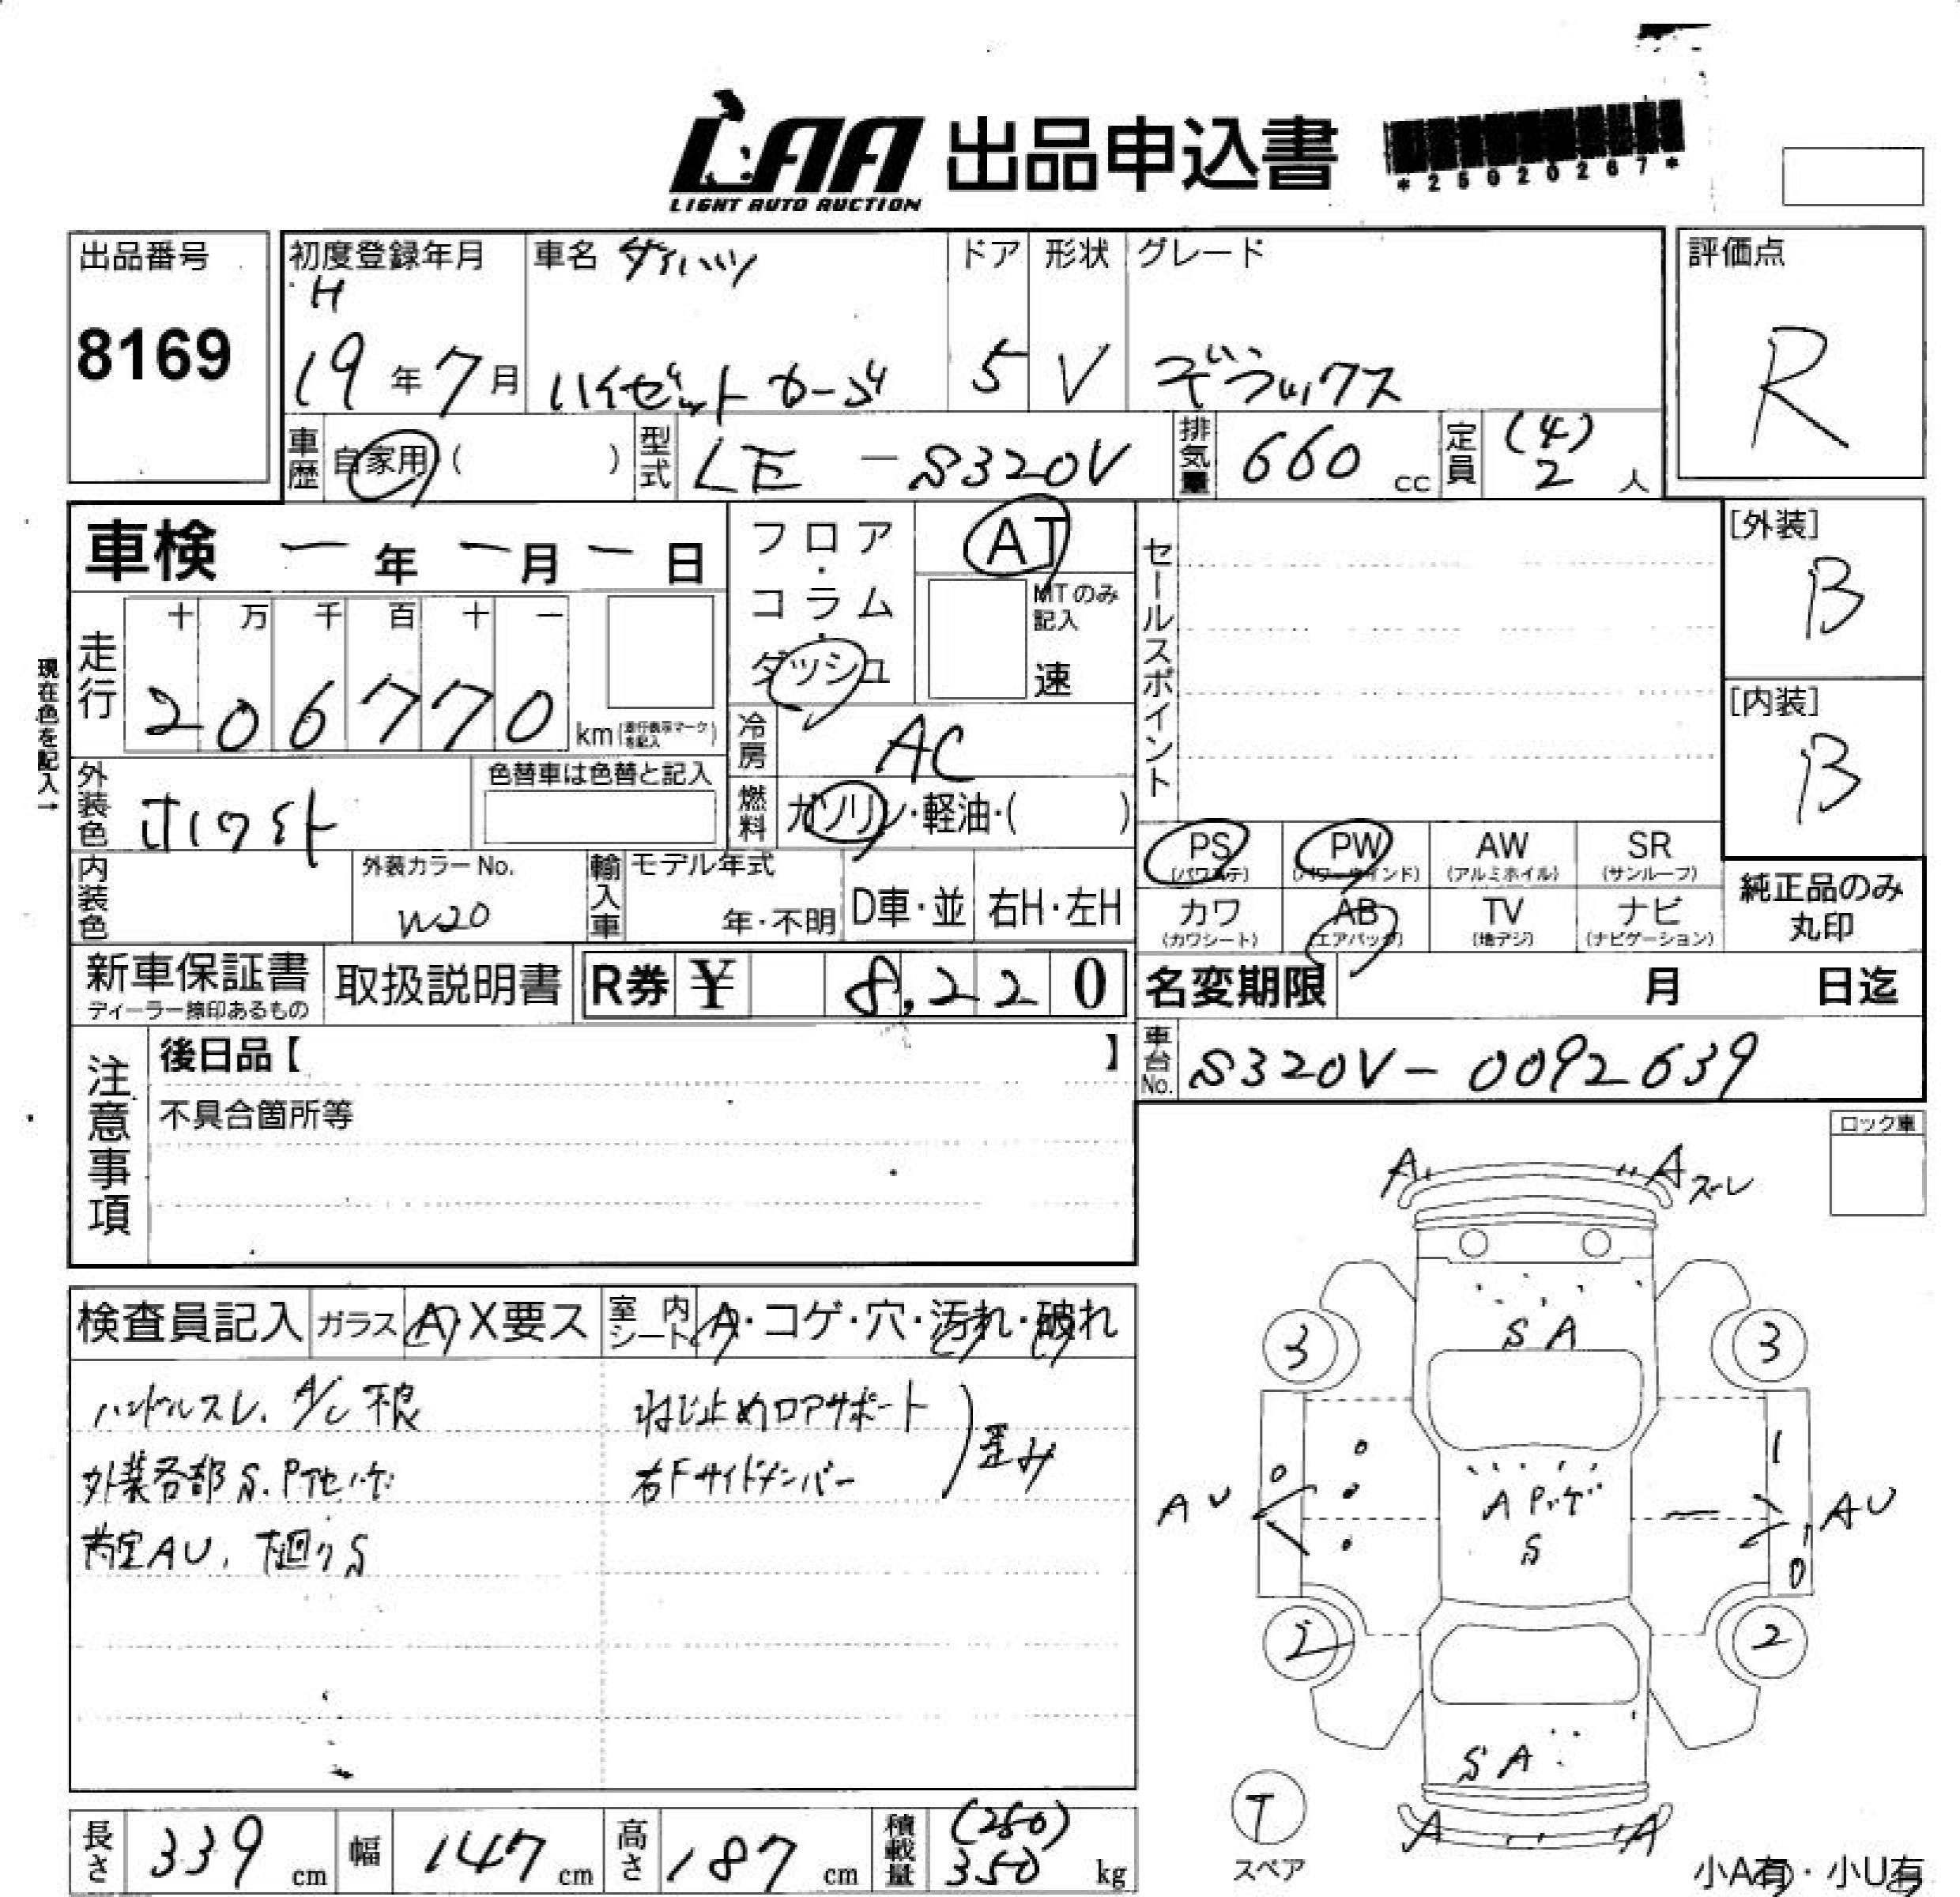 LAA 出品申込書
LIGHT AUTO AUCTION
*25020267*
出品番号
8169
初度登録年月
H
19年7月
車名 ダイハツ
ハイゼットカーゴ
ドア
5
形状
V
グレード
デラックス
評価点
R
車歴 自家用 ( )
型式 LE - S320V
排気量 660 cc
定員 (4)
2 人
車検 ー年ー月ー日
フロア・コラム・ダッシュ
AT
MTのみ記入
速
セールスポイント
[外装]
B
[内装]
B
現在色を記入→
走行
十 万 千 百 十 一
2 0 6 7 7 0 km (走行表示マークを記入)
冷房 AC
外装色 ホワイト
色替車は色替と記入
燃料 ガソリン・軽油・( )
PS (パワステ)
PW (パワーウインド)
AW (アルミホイル)
SR (サンルーフ)
カワ (カワシート)
AB (エアバッグ)
TV (地デジ)
ナビ (ナビゲーション)
純正品のみ丸印
内装色
外装カラーNo.
W20
輸入車
モデル年式
年・不明
D車・並
右H・左H
新車保証書
ディーラー捺印あるもの
取扱説明書
R券 ¥ 8,220
名変期限 月 日迄
車台No. S320V-0092639
注意事項
後日品【 】
不具合箇所等
ロック車
検査員記入
ガラス A・X要ス
室内シート A・コゲ・穴・汚れ・破れ
ハンドルスレ、A/C不良
外装各部S、P
荷室AU、下廻りS
ねじ止めロアサポート
右Fサイドメンバー
歪み
A
A ズレ
S A
3
3
AU
A
S
AU
2
2
S A
A
A
T
スペア
小A有・小U有
長さ 339 cm
幅 147 cm
高さ 187 cm
積載量 (250)
350 kg